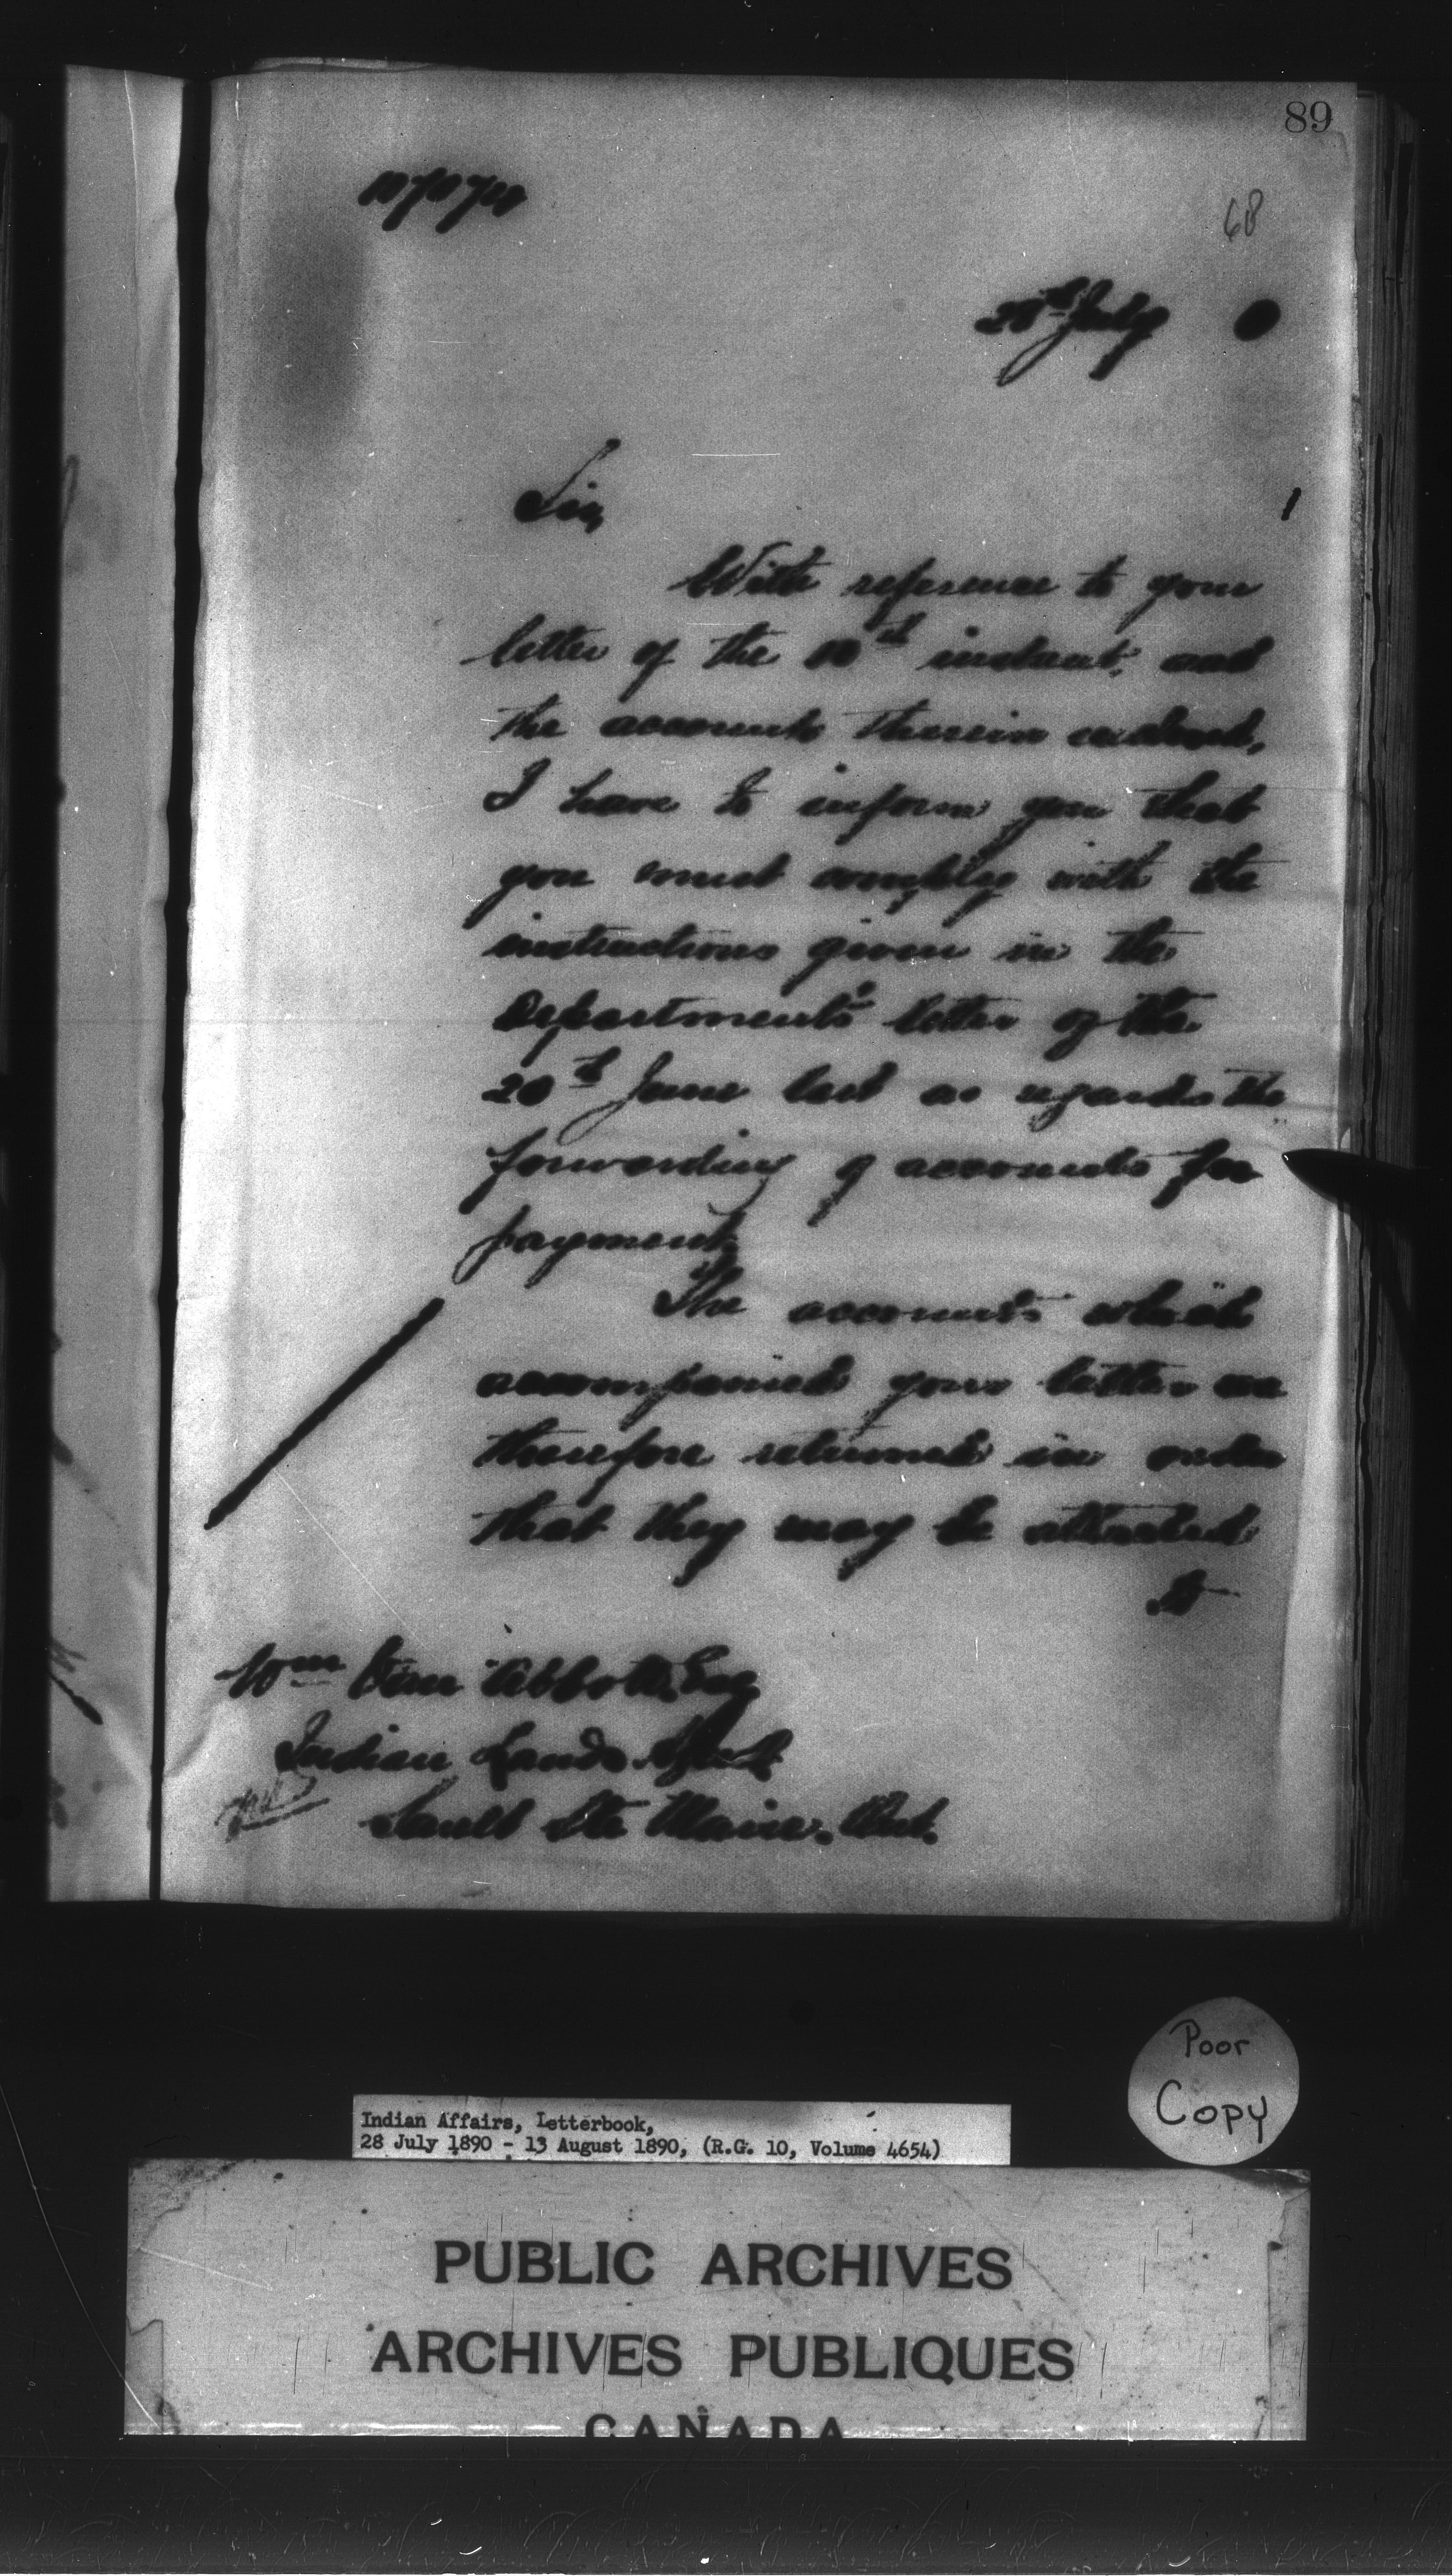 89
68
28th July 0
Sir,
With reference to your
letter of the 10th instant, and
the accounts therein enclosed,
I have to inform you that
you must comply with the
instructions given in the
Department's letter of the
20th June last as regards the
forwarding of accounts for
payment.
The accounts which
accompanied your letter are
therefore returned in order
that they may be attached
to
Wm Van Abbott, Esq
Indian Lands Agent
Sault Ste Marie. Ont.
Poor
Copy
Indian Affairs, Letterbook,
28 July 1890 - 13 August 1890, (R.G. 10, Volume 4654)
PUBLIC ARCHIVES
ARCHIVES PUBLIQUES
CANADA